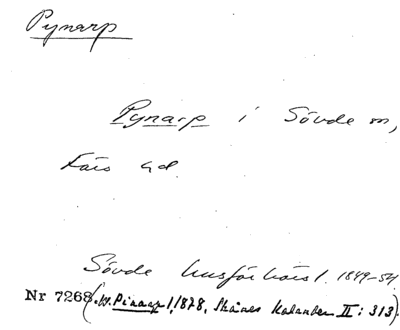 Pynarp
Pynarp i Sövde sn,
Färs hd.
Sövde husförhörsl. 1849-54
Nr 7268 (. Pinnarp 1, 1878, Skånes Kalender II: 313)